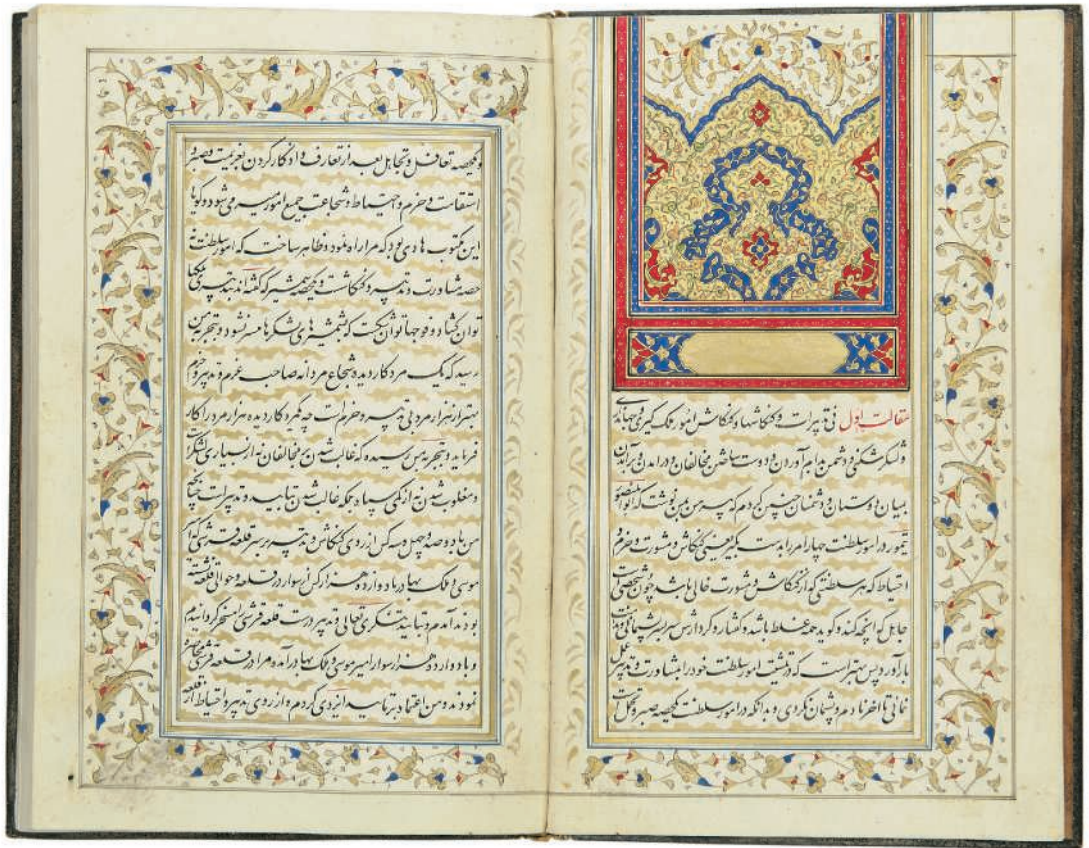 مقالت اول فی تدبیرات و کنکاشها و کنکاش امور ملک گیری و جهانداری
و لشکر شکنی و دشمن بدام آوردن و دوست ساختن مخالفان و در امدن و برآمدن
بمیان دوستان و دشمنان چنین کردم که پیر من بمن نوشت که ابوالمنصور
تیمور در امور سلطنت چهار امر را بدست بگیر یعنی کنکاش و مشورت و حزم و
احتیاط که هر سلطنتی که از کنکاش و مشورت خالی باشد چون شخصی
جاهل که آنچه کند و گوید همه غلط باشد و گفتار و کردارش سربسر پشیمانی و ندامت
بار آورد پس بهتر است که در تمشیت امور سلطنت خود را بمشاورت و تدبیر عمل
نمائی تا اخر نادم و پشیمان نکردی و بدانکه در امور سلطنت یکحصه صبر و تحمل است
و یکحصه تغافل و تجاهل بعد از تعارف و از کار کردن بعزیمت و صبر و
استقامت و حزم و احتیاط و شجاعت جمیع امور میسر می شود و گویا
این مکتوب هادی بود که مرا راه نمود و ظاهر ساخت که امور سلطنت نه
حصه مشاورت و تدبیر و کنکاشست و یکحصه شمشیر که گفته‌اند بتدبیری ملکها
توان کشاد و فوجها توان شکست که بشمشیرهای لشکرها میسر نشود و بتجربه من
رسید که یک مرد کار دیده شجاع مردانه صاحب عزم و تدبیر و حزم
بهتر از هزار مرد بی تدبیر و حزم است چه یکمرد کار دیده هزار مرد را کار
فرماید و بتجربه من رسیده که غالب شدن بر مخالفان نه از بسیاری لشکر است
و مغلوب شدن نه از کمی سپاه بلکه غالب شدن بتایید و تدبیر است چنانچه
من با دو صد و چهل و سه کس از روی کنکاش و تدبیر بر سر قلعه قرشی که امیر
موسی و ملک بهادر با دوازده هزار کس از سوار در قلعه و حوالی قلعه نشسته
بودند آمدم و بتایید تنکری تعالی و تدبیر درست قلعه قرشی را مسخر گردانیدم
و با دوازده هزار سوار امیر موسی و ملک بهادر آمده مرا در قلعه قرشی محاصره
نمودند و من اعتماد بر تایید ایزدی کردم و از روی تدبیر و احتیاط از قلعه